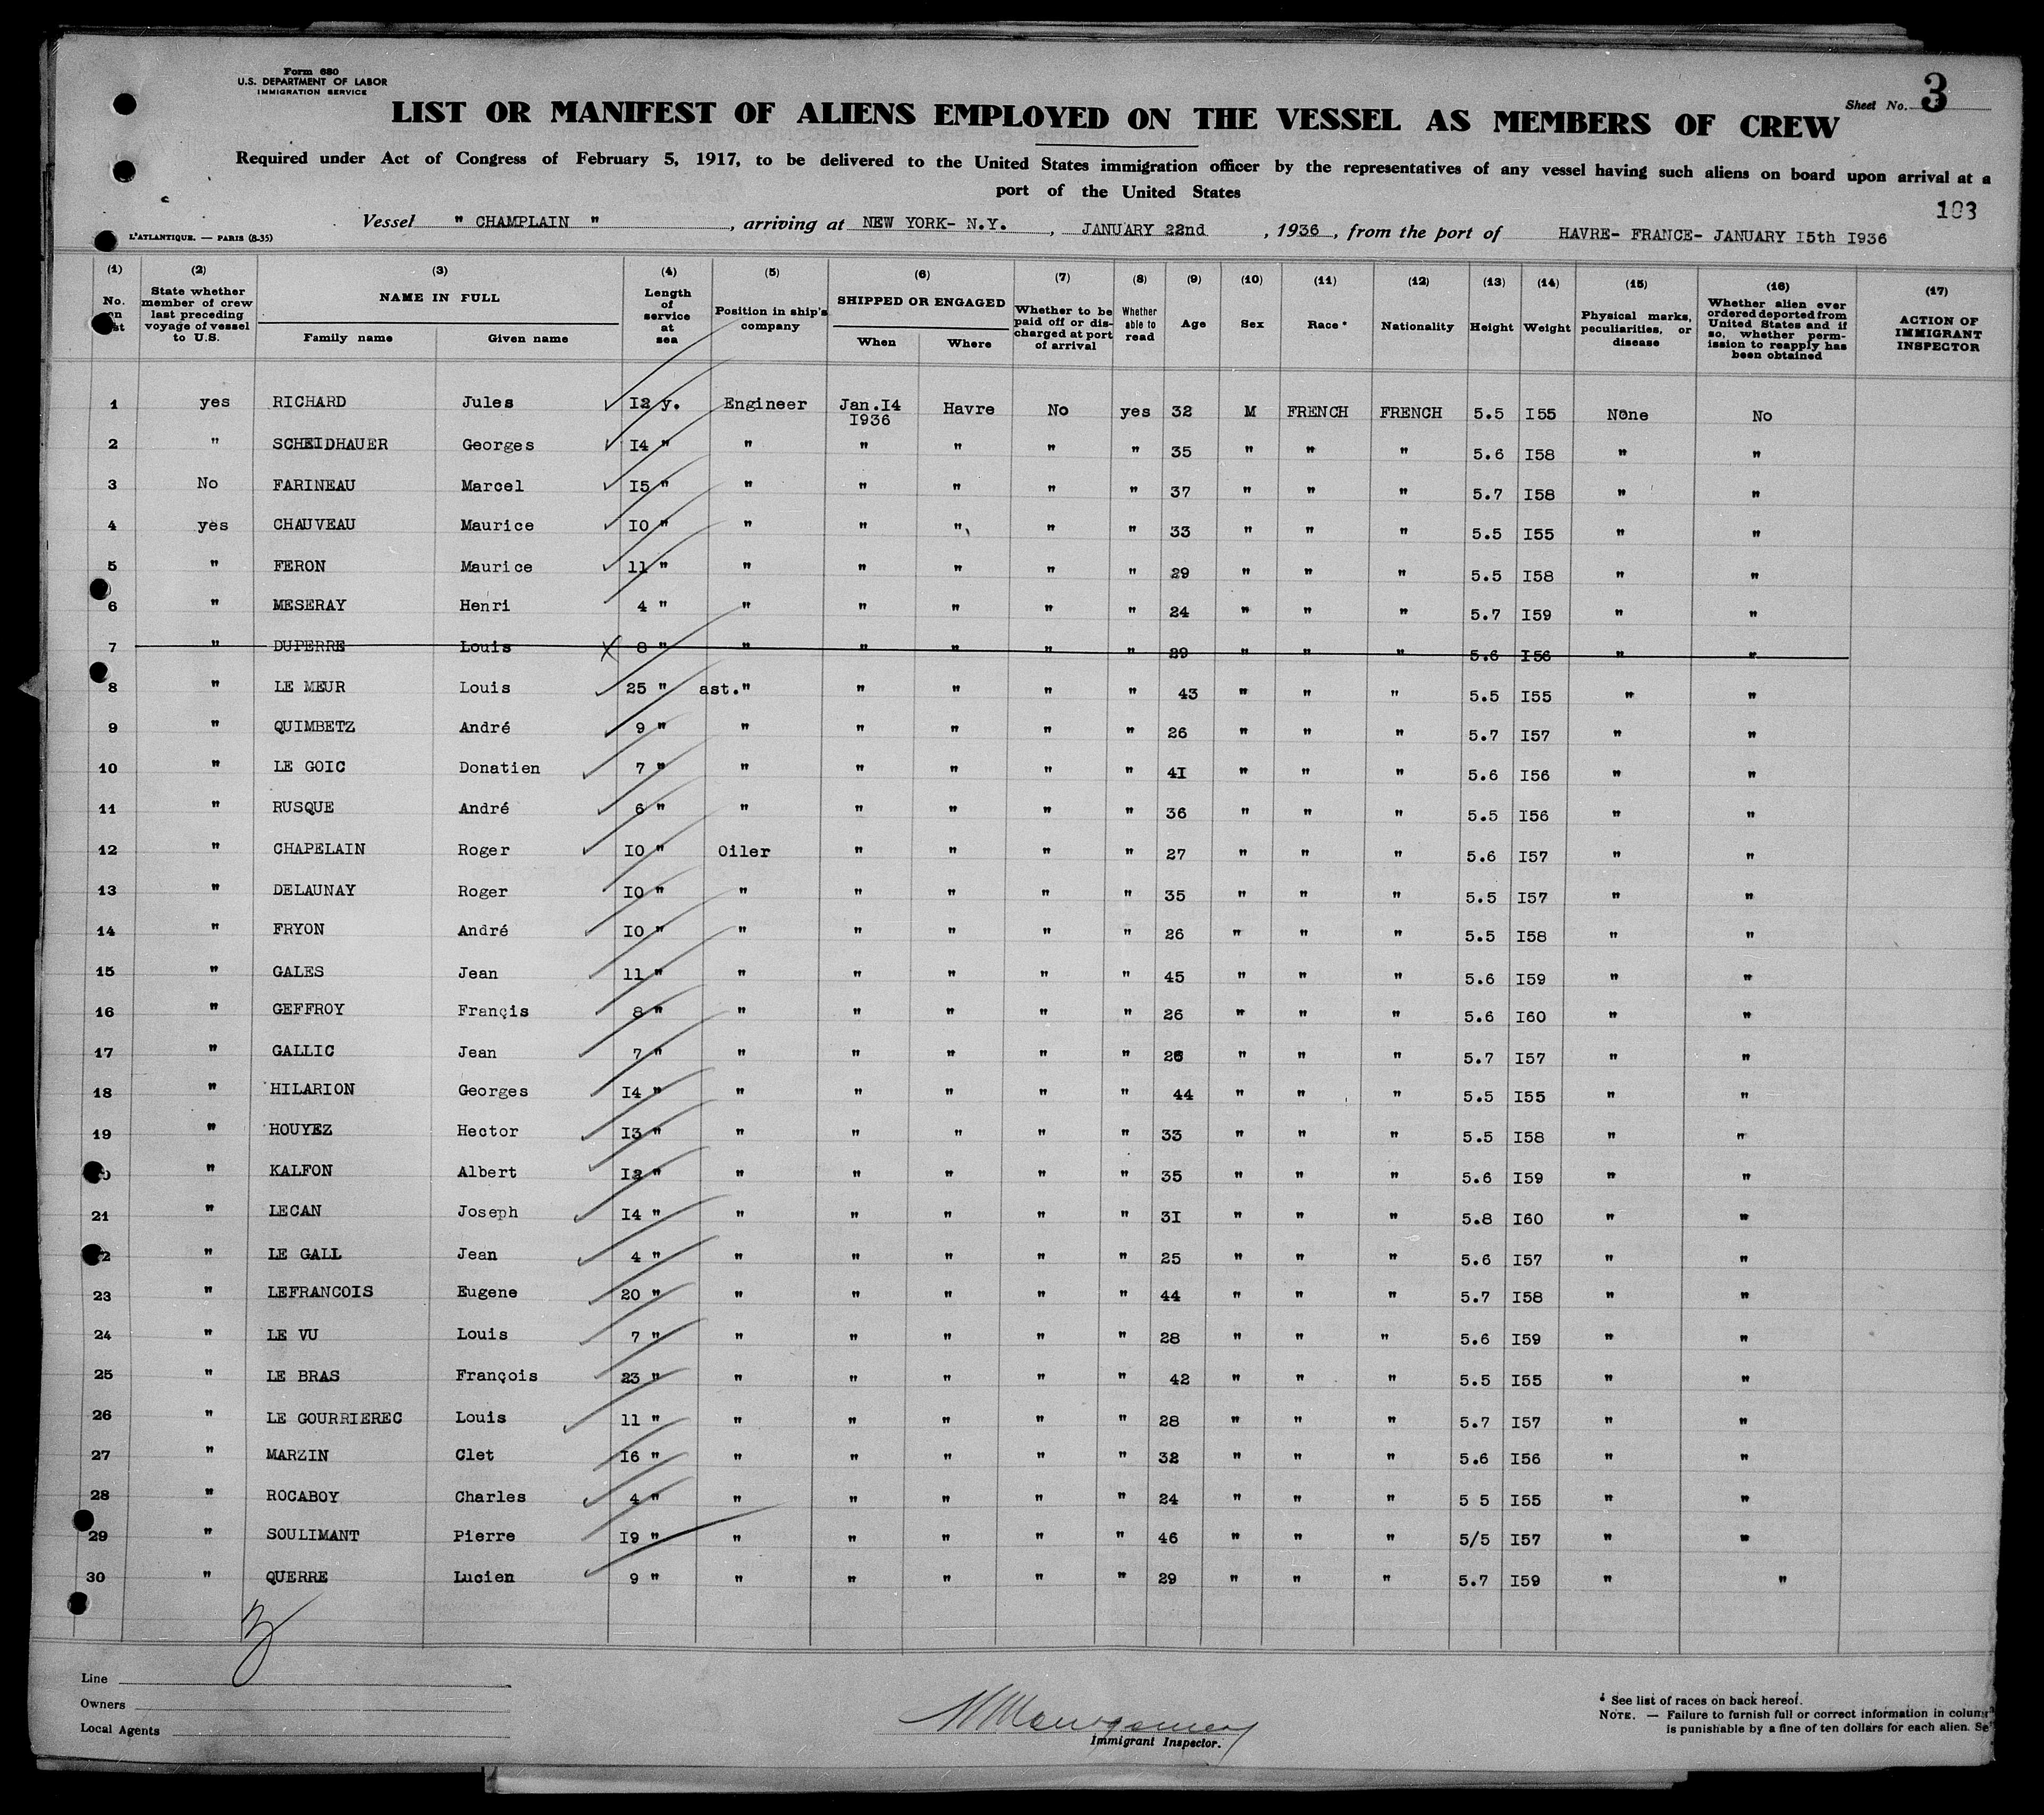 Form 680
U.S. DEPARTMENT OF LABOR
IMMIGRATION SERVICE
Sheet No. 3
LIST OR MANIFEST OF ALIENS EMPLOYED ON THE VESSEL AS MEMBERS OF CREW
Required under Act of Congress of February 5, 1917, to be delivered to the United States immigration officer by the representatives of any vessel having such aliens on board upon arrival at a
port of the United States
103
Vessel " CHAMPLAIN " , arriving at NEW YORK- N.Y. , JANUARY 22nd , 1936 , from the port of HAVRE- FRANCE- JANUARY I5th I936
L'ATLANTIQUE. — PARIS (8-35)
(1) (2) (3) (4) (5) (6) (7) (8) (9) (10) (11) (12) (13) (14) (15) (16) (17)
No. on State whether member of crew last preceding voyage of vessel to U.S. NAME IN FULL Family name Given name Length of service at sea Position in ship's company SHIPPED OR ENGAGED When Where Whether to be paid off or discharged at port of arrival Whether able to read Age Sex Race * Nationality Height Weight Physical marks, peculiarities, or disease Whether alien ever ordered deported from United States and if so, whether permission to reapply has been obtained ACTION OF IMMIGRANT INSPECTOR
1 yes RICHARD Jules I2 y. Engineer Jan.I4 I936 Havre No yes 32 M FRENCH FRENCH 5.5 I55 None No
2 " SCHEIDHAUER Georges I4 " " " " " " 35 " " " 5.6 I58 " "
3 No FARINEAU Marcel I5 " " " " " " 37 " " " 5.7 I58 " "
4 yes CHAUVEAU Maurice IO " " " " " " 33 " " " 5.5 I55 " "
5 " FERON Maurice 11 " " " " " " 29 " " " 5.5 I58 " "
6 " MESERAY Henri 4 " " " " " " 24 " " " 5.7 I59 " "
7 " DUPERRE Louis 8 " " " " " " 29 " " " 5.6 I56 " "
8 " LE MEUR Louis 25 " ast." " " " " 43 " " " 5.5 I55 " "
9 " QUIMBETZ André 9 " " " " " " 26 " " " 5.7 I57 " "
10 " LE GOIC Donatien 7 " " " " " " 4I " " " 5.6 I56 " "
11 " RUSQUE André 6 " " " " " " 36 " " " 5.5 I56 " "
12 " CHAPELAIN Roger IO " Oiler " " " " 27 " " " 5.6 I57 " "
13 " DELAUNAY Roger IO " " " " " " 35 " " " 5.5 I57 " "
14 " FRYON André IO " " " " " " 26 " " " 5.5 I58 " "
15 " GALES Jean 11 " " " " " " 45 " " " 5.6 I59 " "
16 " GEFFROY Françis 8 " " " " " " 26 " " " 5.6 I60 " "
17 " GALLIC Jean 7 " " " " " " " " " 5.7 I57 " "
18 " HILARION Georges I4 " " " " " " 44 " " " 5.5 I55 " "
19 " HOUYEZ Hector I3 " " " " " " 33 " " " 5.5 I58 " "
" KALFON Albert I2 " " " " " " 35 " " " 5.6 I59 " "
21 " LECAN Joseph I4 " " " " " " 3I " " " 5.8 I60 " "
2 " LE GALL Jean 4 " " " " " " 25 " " " 5.6 I57 " "
23 " LEFRANCOIS Eugene 20 " " " " " " 44 " " " 5.7 I58 " "
24 " LE VU Louis 7 " " " " " " 28 " " " 5.6 I59 " "
25 " LE BRAS François 23 " " " " " " 42 " " " 5.5 I55 " "
26 " LE GOURRIEREC Louis 11 " " " " " " 28 " " " 5.7 I57 " "
27 " MARZIN Clet I6 " " " " " " 32 " " " 5.6 I56 " "
28 " ROCABOY Charles 4 " " " " " " 24 " " " 5 5 I55 " "
29 " SOULIMANT Pierre I9 " " " " " " 46 " " " 5/5 I57 " "
30 " QUERRE Lucien 9 " " " " " " 29 " " " 5.7 I59 " "
Line
Owners
Local Agents
Immigrant Inspector.
* See list of races on back hereof.
NOTE. — Failure to furnish full or correct information in
is punishable by a fine of ten dollars for each alien.